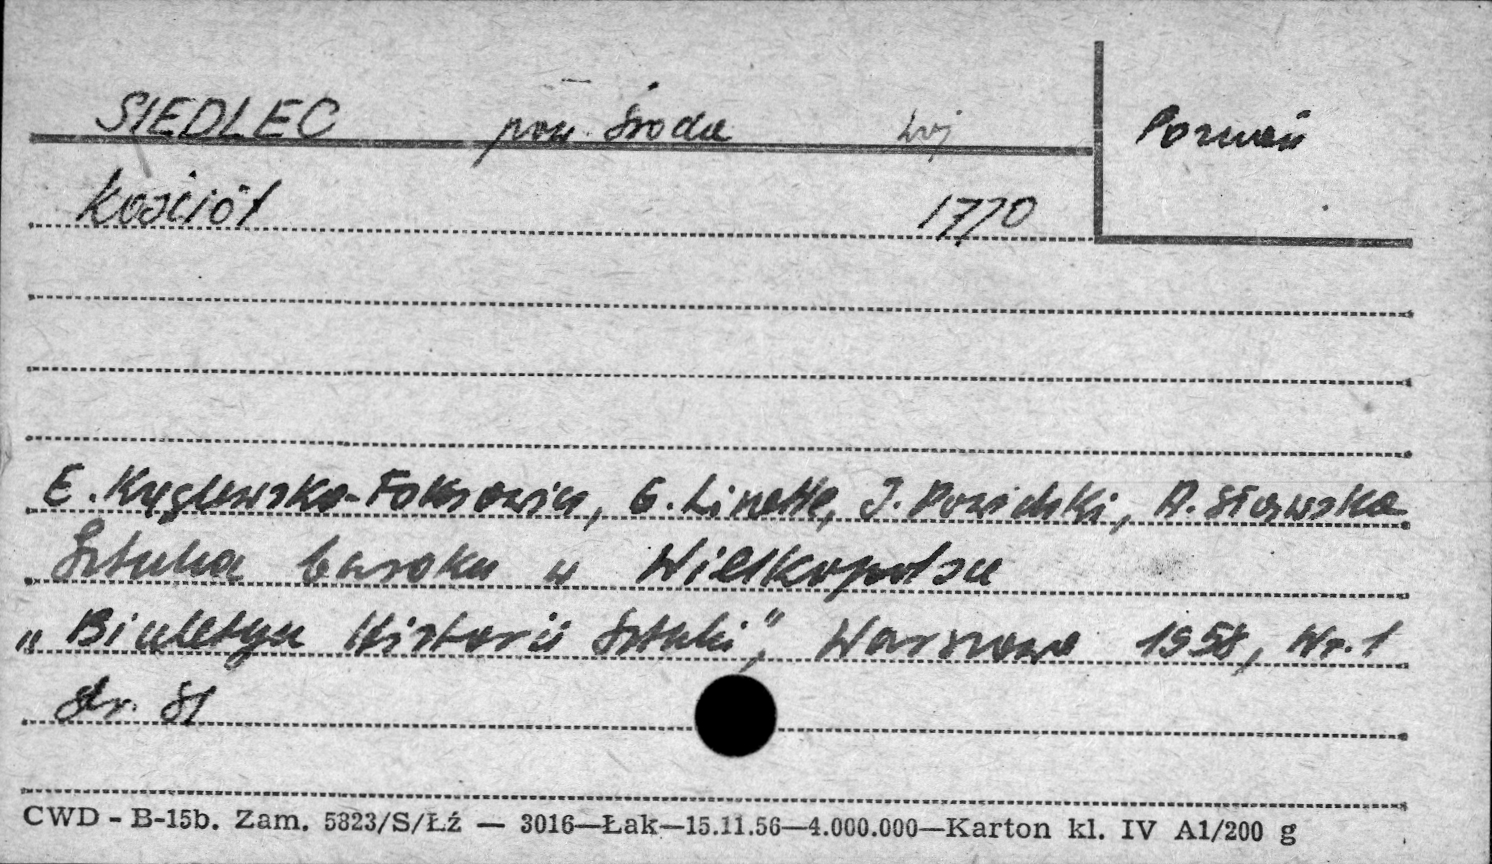 SIEDLEC pow. Środa woj Poznań
Kościół 1770
E. Kręglewska-Foksowicz, G. Linette, J. Powidzki, A. Sławska
Sztuka baroku w Wielkopolsce
„Biuletyn Historii Sztuki", Warszawa 1958, Nr. 1
str. 81
CWD - B-15b. Zam. 5823/S/Łź — 3016—Łak—15.11.56—4.000.000—Karton kl. IV A1/200 g